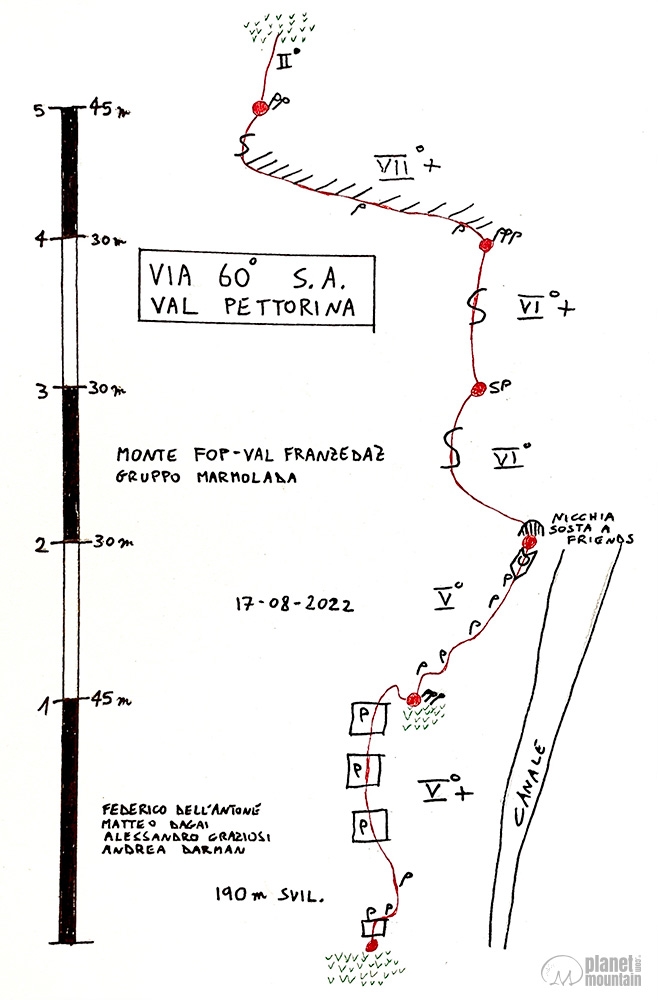 II°
PP
5 45 m
VII°+
P
P
PPP
4 30 m
VIA 60° S.A.
VAL PETTORINA
VI°+
3 30 m
SP
MONTE FOP-VAL FRANZEDAZ
GRUPPO MARMOLADA
VI°
NICCHIA
SOSTA A
FRIENDS
2 30 m
C
P
P
V°
17-08-2022
P
P
P
1 45 m
PP
P
P
V°+
CANALE
P
FEDERICO DELL'ANTONE
MATTEO DAGAI
ALESSANDRO GRAZIOSI
ANDREA DARMAN
P
190 m SVIL.
P P
planet
mountain
.com